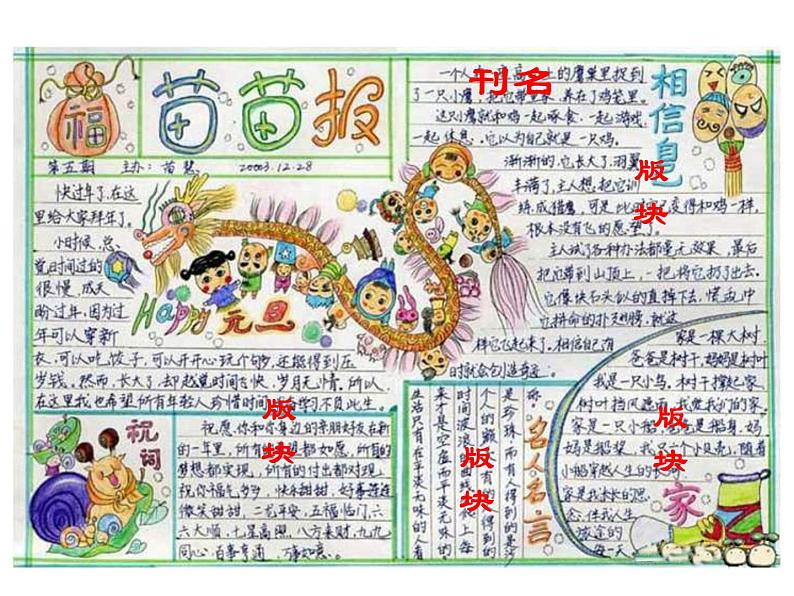 福
苗苗报
第五期 主办：苗慧 20003.12.28
刊名
快过年了，在这
里给大家拜年了，
小时候，总
觉时间过的
很慢，成天
盼过年，因为过
年可以穿新
衣，可以吃饺子，可以开开心玩个够，还能得到压
岁钱。然而，长大了，却越觉时间飞快，岁月无情。所以
在这里我也希望所有年轻人珍惜时间 学习不负此生。
Happy 元旦
相信自己
一个人 高 上的鹰巢里捉到
了一只小鹰，把它带回家，养在了鸡笼里。
这只小鹰就和鸡一起啄食，一起游戏，
一起休息，它以为自己就是一只鸡。
渐渐的，它长大了，羽翼
丰满了，主人想把它训
练成猎鹰，可是 变得和鸡一样，
根本没有飞的愿望了。
主人试了各种办法都毫无效果，最后
把它带到山顶上，一把将它扔了出去。
它像块石头似的直掉下去，慌乱中
它拼命的扑
样它飞起来了，相信自己有
时就会创造奇迹。
版块
版块
版块
版块
祝词
祝愿你和你身边的亲朋好友在新
的一年里，所有 望都如愿，所有的
梦想都实现，所有的付出都兑现，
祝你福气多多，快乐甜甜，好事连连
微笑甜甜，二龙 安，五福临门，六
六大顺，七星高照，八方来财，九九
同心，百事亨通，万事如意。
名人名言
是珍珠，而有人得到的是
个人的 有 的得到的
时间波浪的曲线 上每
来才是空虚而平淡无味的
生活只有在平淡无味的人看
家是一棵大树，
爸爸是树干，妈妈是树叶
我是一只小鸟，树干撑起家
树叶挡风遮雨，我 我们的家。
家是一只小船， 是船身，妈
妈是船桨，我 个小贝壳，随着
小船穿越人生的长
家是我永 的思
念，伴我人生
旅途的
每一天
家